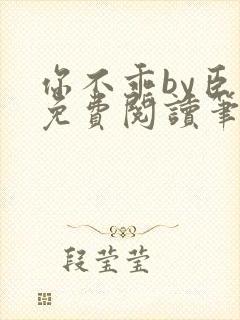 你不乖by臣
免費閱讀筆
段莹莹